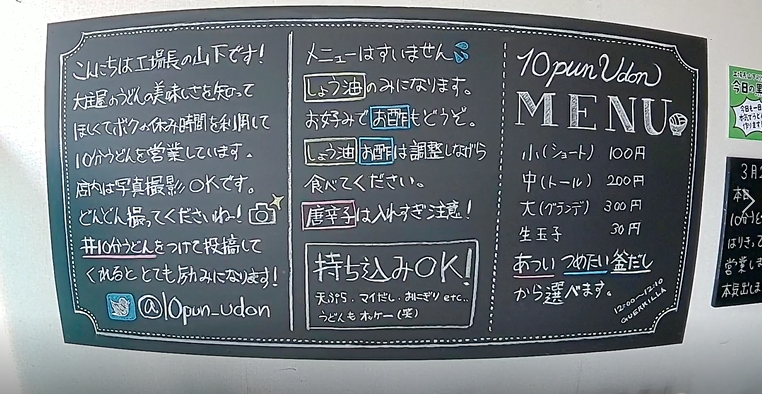 こんにちは工場長の山下です!
大庄屋のうどんの美味しさを知って
ほしくてボクの休み時間を利用して
10分うどんを営業しています。
店内は写真撮影OKです。
どんどん撮ってくださいね〜!
#10分うどんをつけて投稿して
くれるととても励みになります!
@10pun_udon
メニューはすいません
しょう油のみになります。
お好みでお酢もどうぞ。
しょう油お酢は調整しながら
食べてください。
唐辛子は入れすぎ注意!
持ち込みOK!
天ぷら・マイだし・おにぎりetc..
うどんもオッケー(笑)
10pun Udon
MENU
小(ショート) 100円
中(トール) 200円
大(グランデ) 300円
生玉子 30円
あつい つめたい 釜だし
から選べます。
12:00〜12:10
GUERRILLA
今日の
3月
本日
10分
はりき
営業しま
本気出しま